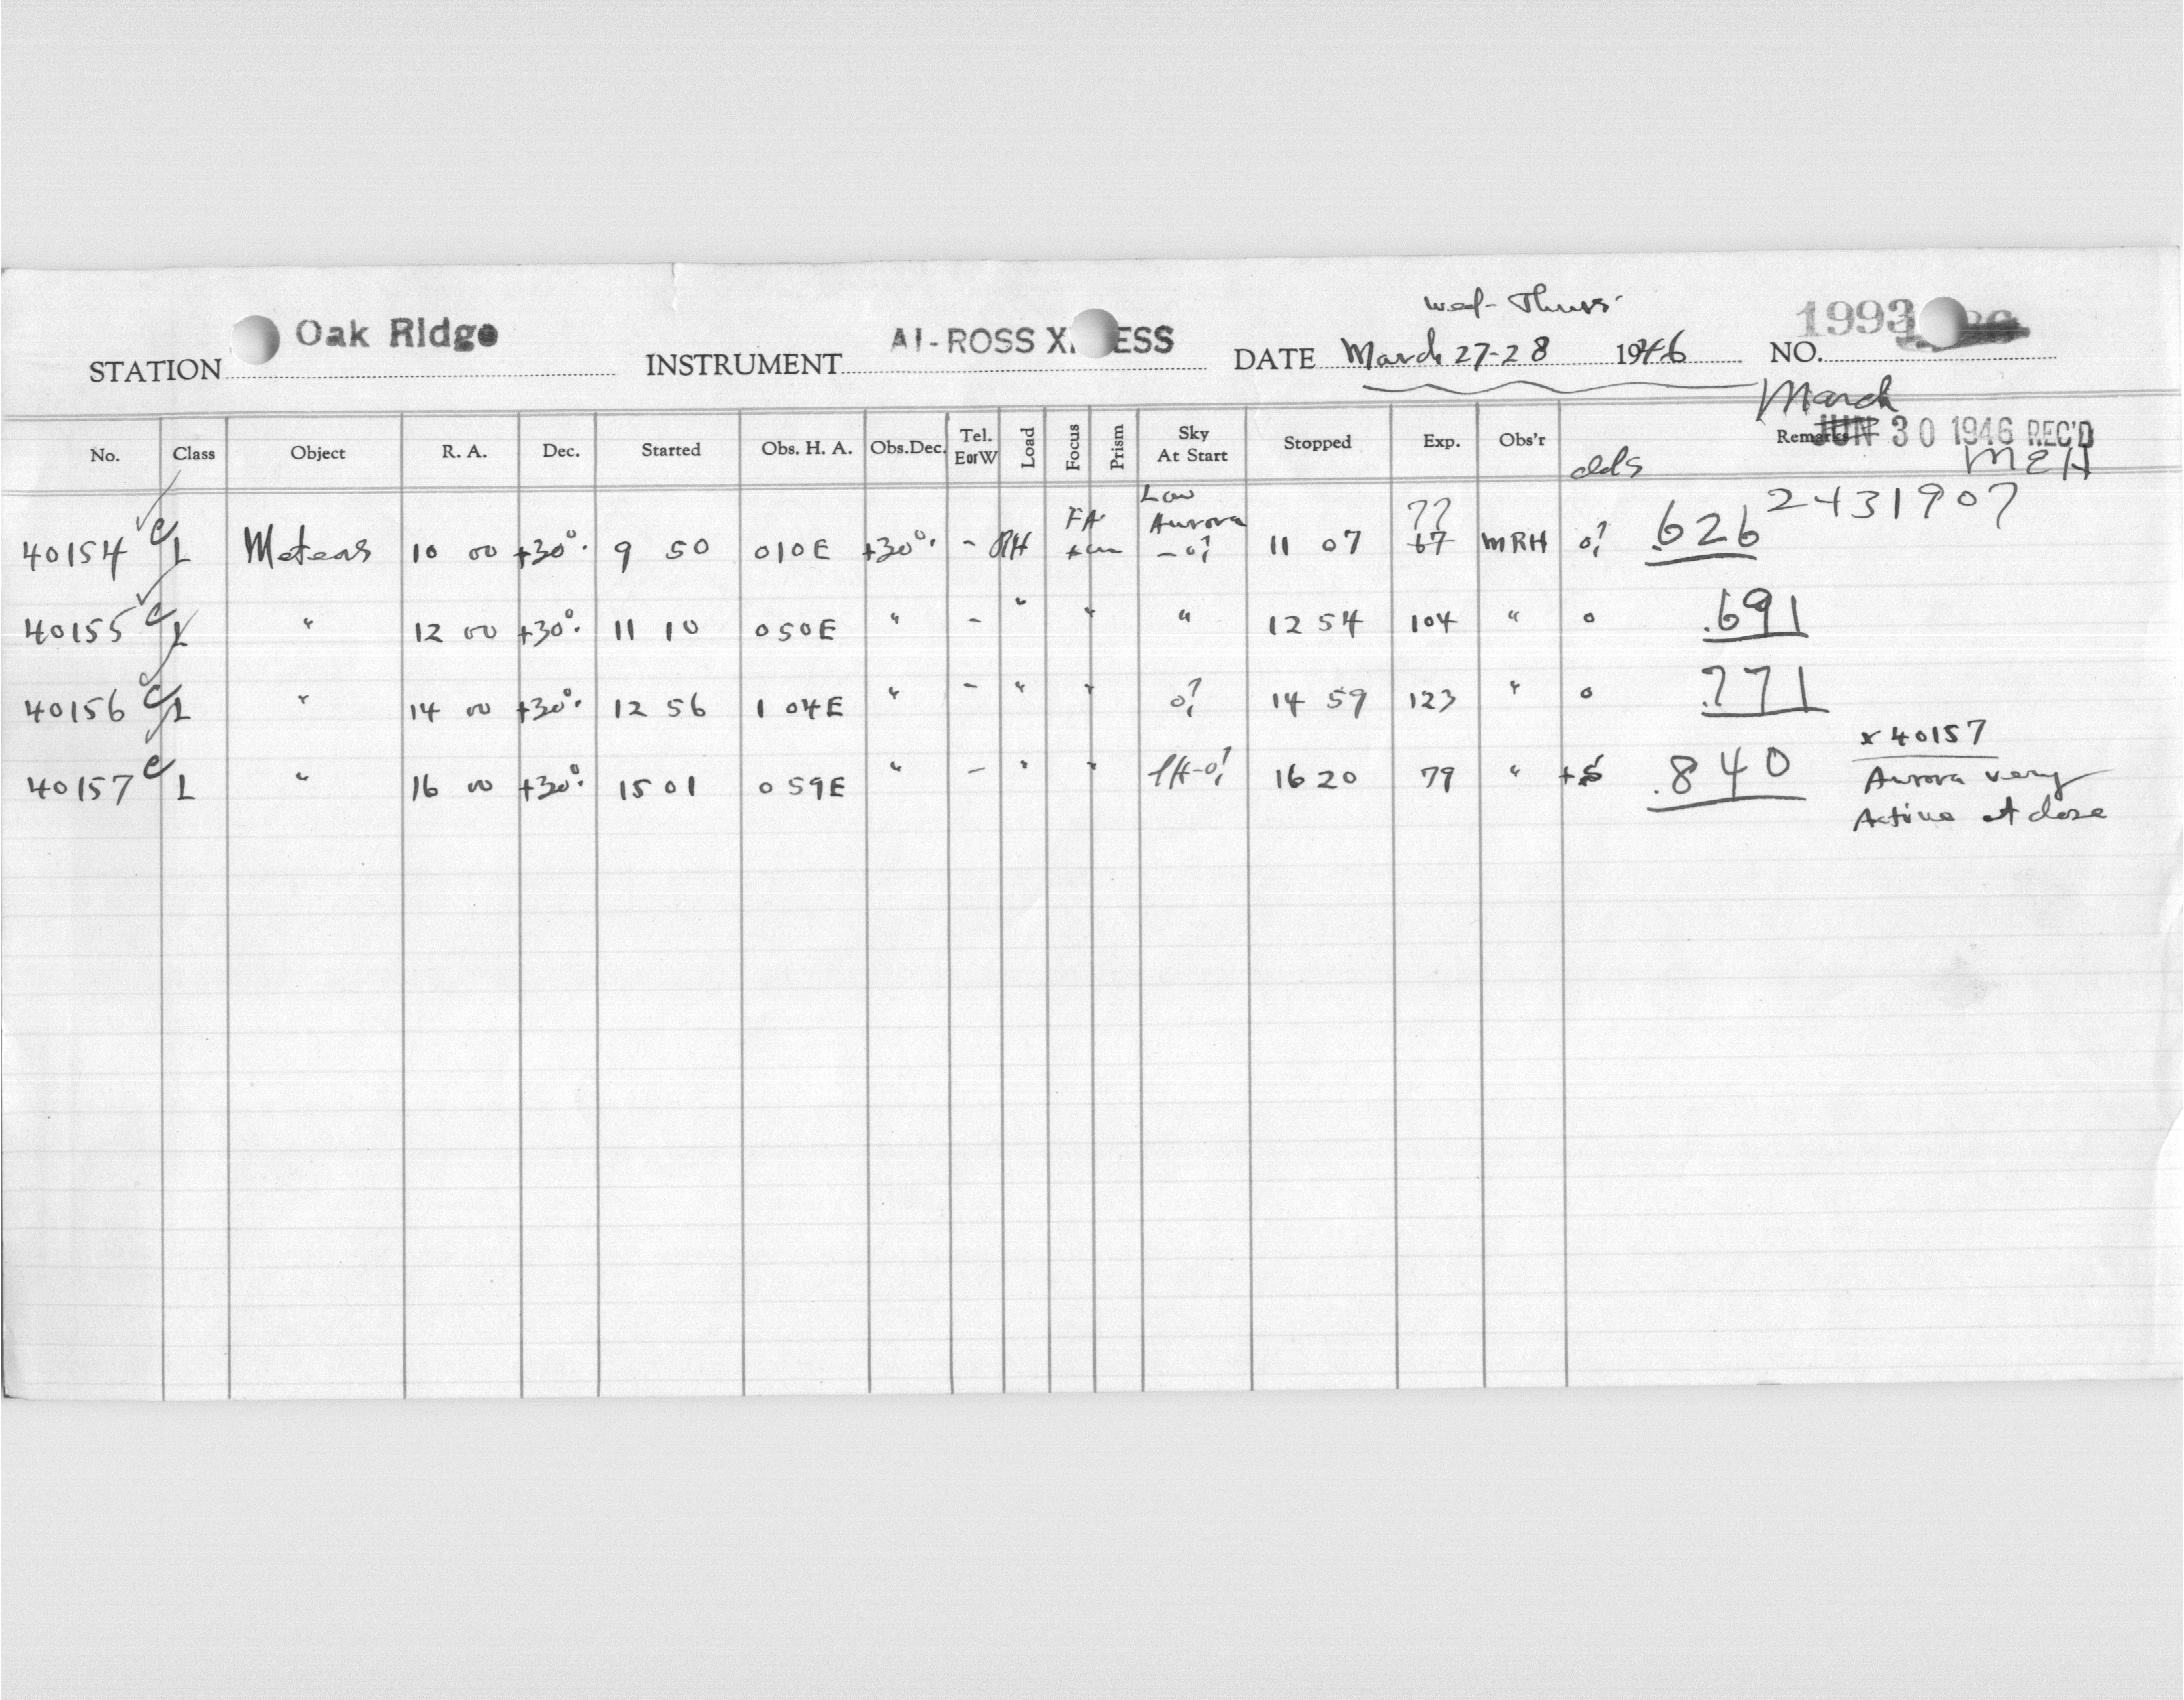 Wed-Thurs.
Oak Ridge AI-ROSS X ESS 1993
STATION INSTRUMENT DATE March 27-28 1946 NO.
March
JUN 30 1946 REC'D
No. Class Object R. A. Dec. Started Obs. H. A. Obs.Dec. Tel. EorW Load Focus Prism Sky At Start Stopped Exp. Obs'r clds Remarks
MEH
2431907
40154 C L Meteors 10 00 +30°. 9 50 010E +30°. - RH FA Low Aurora -0? 11 07 77 67 MRH 0? .626
40155 C L " 12 00 +30°. 11 10 050E " - " " " 12 54 104 " 0 .691
40156 C L " 14 00 +30°. 12 56 1 04E " - " " 0? 14 59 123 " 0 .771
40157 C L " 16 00 +30°. 15 01 0 59E " - " " 16 20 79 " .840
x 40157
Aurora very
Active at close